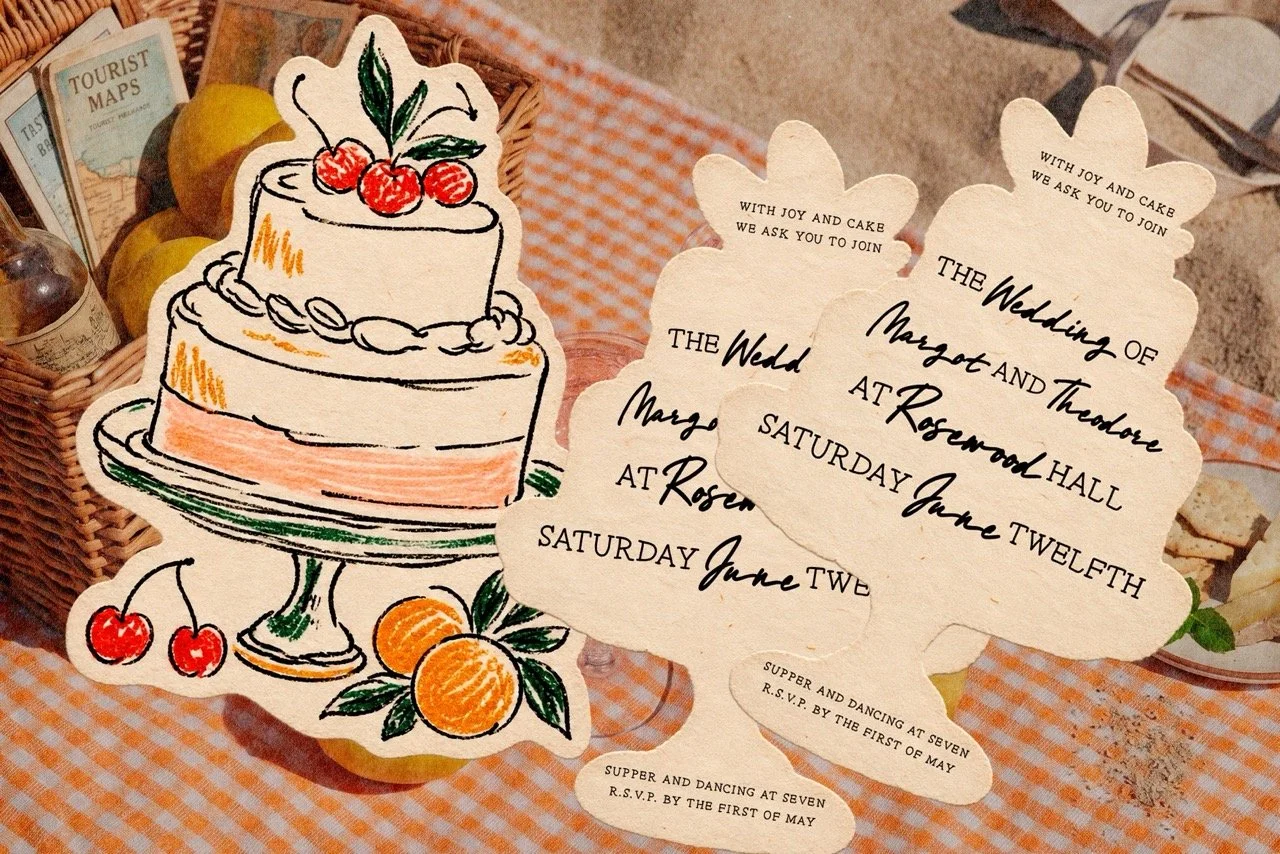 TOURIST
MAPS
WITH JOY AND CAKE
WE ASK YOU TO JOIN
THE Wedd
Margo
AT Rosew
SATURDAY June TWE
SUPPER AND DANCING AT SEVEN
R.S.V.P. BY THE FIRST OF MAY
WITH JOY AND CAKE
WE ASK YOU TO JOIN
THE Wedding OF
Margot AND Theodore
AT Rosewood HALL
SATURDAY June TWELFTH
SUPPER AND DANCING AT SEVEN
R.S.V.P. BY THE FIRST OF MAY